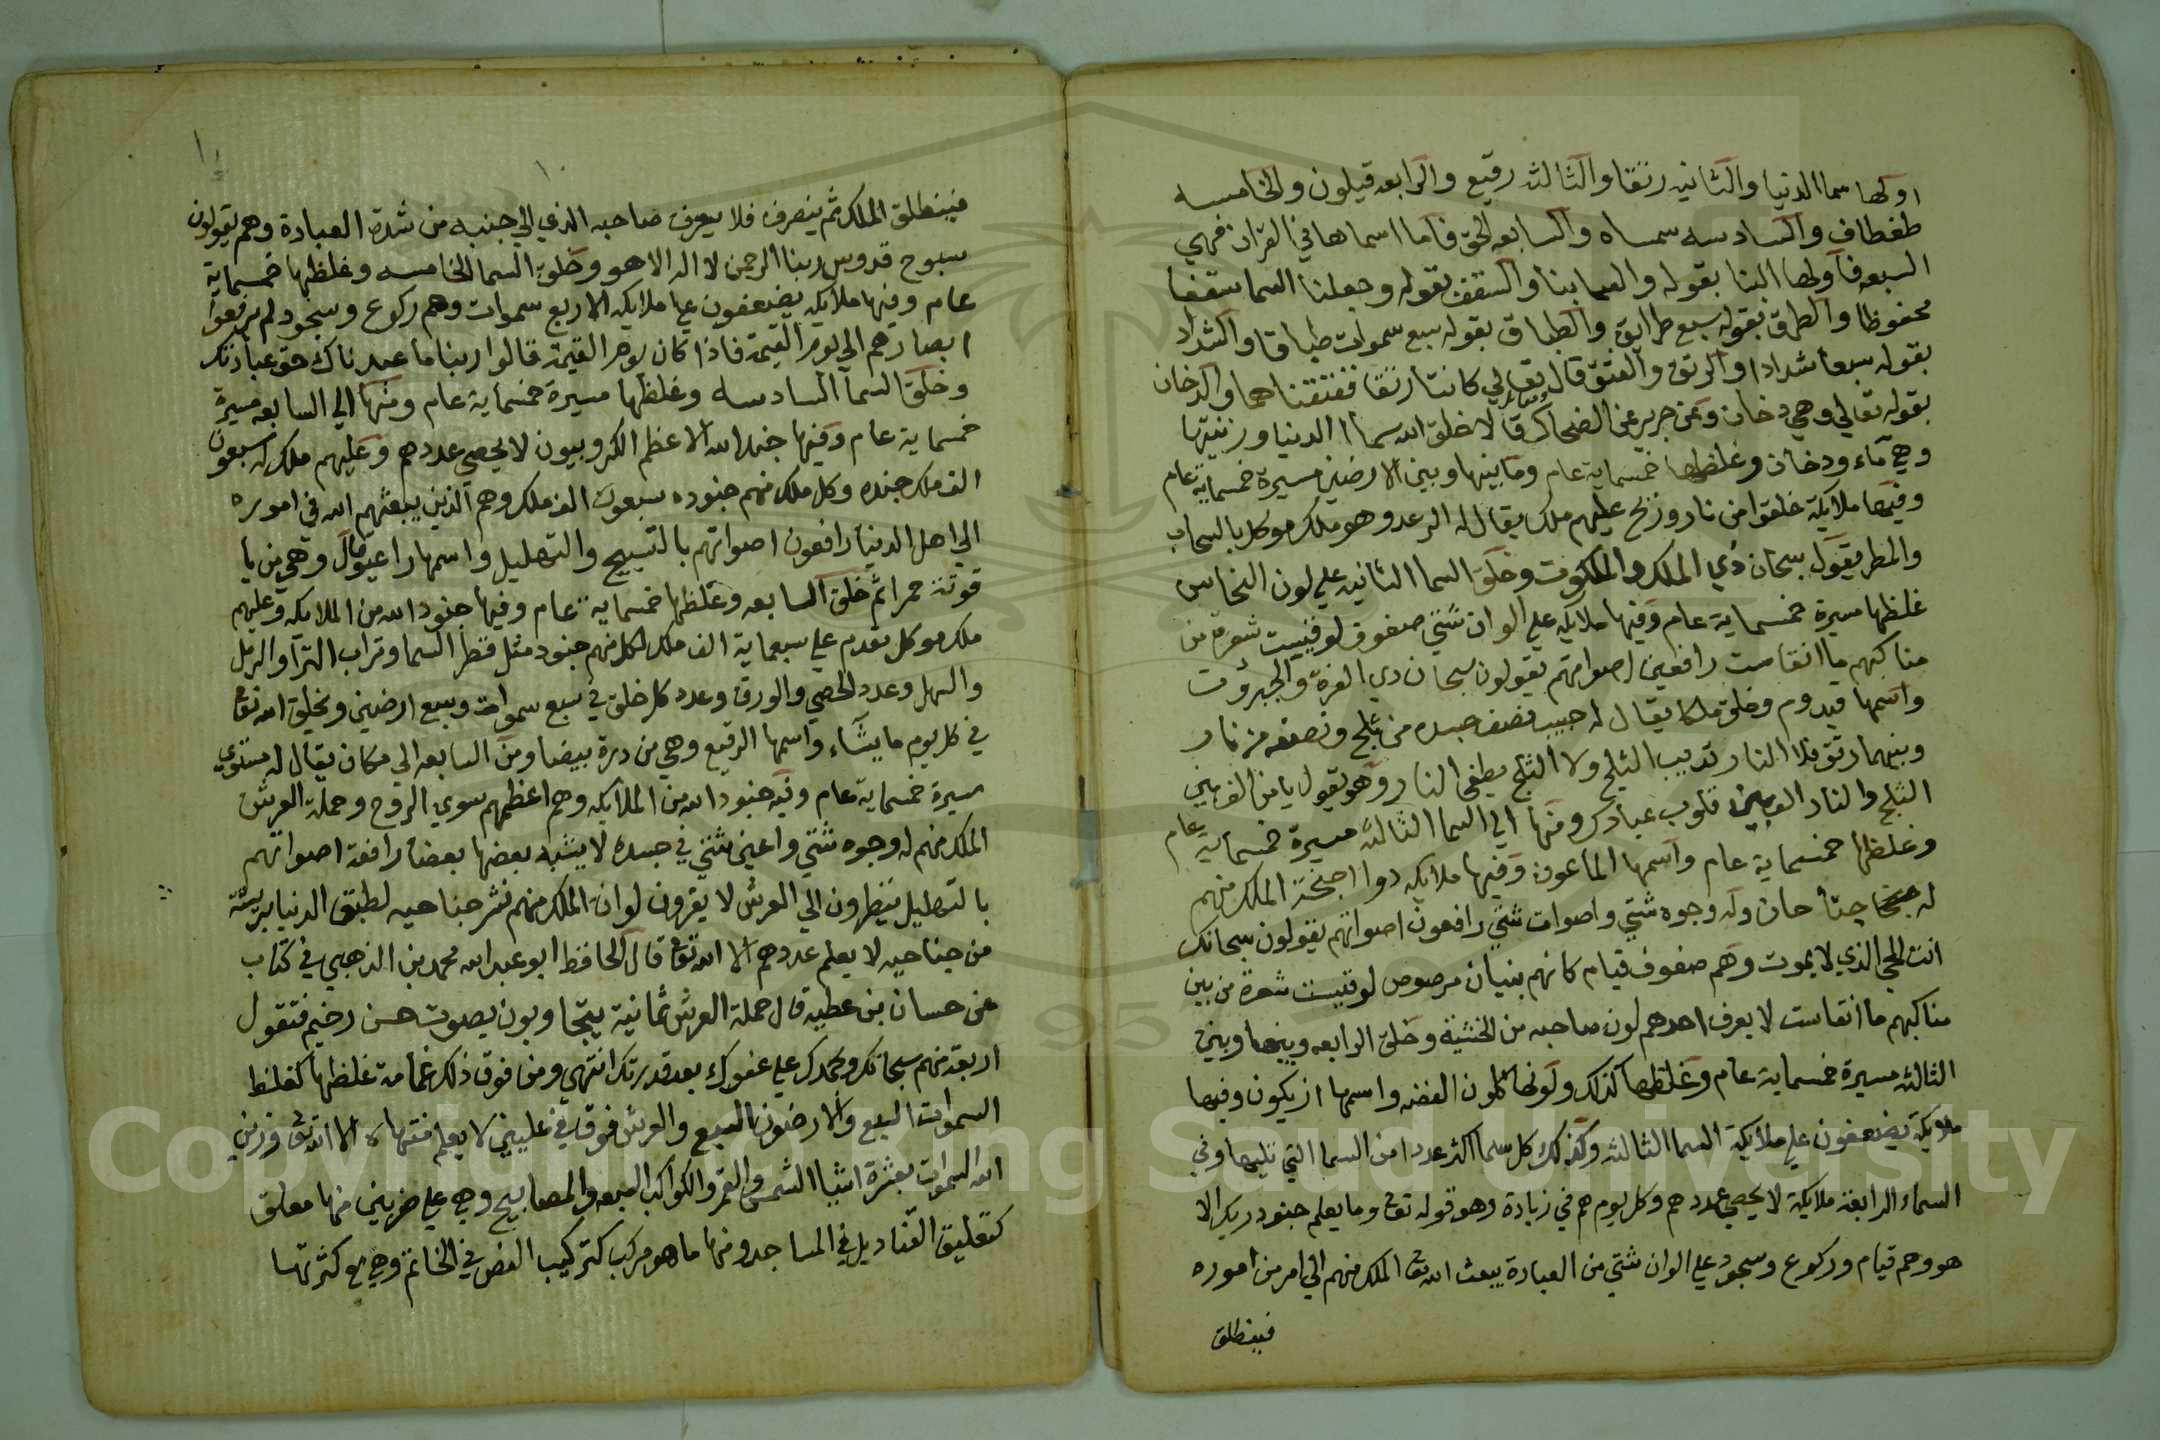 اولها سما الدنيا والثانيه رتقا والثالثه رقيع والرابعه قيلون والخامسه
طفطاف والسادسه سمساه والسابعه الحق فاما اسماها في القران فهي
السبعه فاولها البنا بقوله والسما بنا والسقف بقوله وجعلنا السما سقفا
محفوظا والطرق بقوله سبع طرايق والطباق بقوله سبع سموات طباقا والشداد
بقوله سبعا شدادا والرتق والفتق قال تعالي كانتا رتقا ففتقناهما والدخان
بقوله تعالي وهي دخان وعن جرير عن الضحاك قال لما خلق الله سما الدنيا وزينتها
وهي ماء ودخان وغلظها خمسماية عام وما بينها وبين الارضين مسيرة خمسماية عام
وفيها ملايكة خلقوا من نار وريح عليهم ملك يقال له الرعد وهو ملك موكل بالسحاب
والمطر يقول سبحان ذي الملك والملكوت وخلق السما الثانيه علي لون النحاس
غلظها مسيرة خمسماية عام وفيها ملايكه علي الوان شتي صفوف لو قيست شعرة من
مناكبهم ما انقاست رافعين اصواتهم يقولون سبحان دي العزة والجبروت
واسمها قيدوم وخلق ملكا يقال له حبيب نصف جسده من ثلج ونصفه من نار
وبينهما رتق فلا النار تديب الثلج ولا الثلج يطفي النار وهو يقول يا من الف بين
الثلج والنار الف بين قلوب عبادك ومنها الي السما الثالثه مسيرة خمسماية عام
وغلظها خمسماية عام واسمها الماعون وفيها ملايكه دوا اجنحة الملك منهم
له جنحا جنا حان وله وجوه شتي واصوات شتي رافعون اصواتهم يقولون سبحانك
انت الحي الذي لا يموت وهم صفوف قيام كانهم بنيان مرصوص لو قيست شعرة من بين
مناكبهم ما انقاست لا يعرف احدهم لون صاحبه من الخشية وخلق الرابعه وبينها وبين
الثالثه مسيرة خمسماية عام وغلظها كذلك ولونها كلون الفضه واسمها ازيكون وفيها
ملايكة يضعفون علي ملايكة السما الثالثه وكذلك كل سما اكثر عددا من السما التي تليها وفي
السماء الرابعة ملايكة لا يحصي عددهم وكل يوم هم في زيادة وهو قوله تع وما يعلم جنود ربك الا
هو وهم قيام وركوع وسجود علي الوان شتي من العبادة يبعث الله تع الملك منهم الي امر من اموره
فينطلق
١٠
فينطلق الملك ثم ينصرف فلا يعرف صاحبه الذي الي جنبه من شدة العبادة وهم يقولون
سبوح قدوس ربنا الرحمن لا اله الا هو وخلق السما الخامسه وغلظها خمسماية
عام وفيها ملايكه يضعفون علي ملايكه الاربع سموات وهم ركوع وسجود لم يرفعوا
ابصارهم الي يوم القيمة فاذا كان يوم القيمة قالوا ربنا ما عبدناك حق عبادتك
وخلق السما السادسه وغلظها مسيرة خمسماية عام ومنها الي السابعه مسيرة
خمسماية عام وفيها جند الله الاعظم الكروبيون لا يحصي عددهم وعليهم ملك له سبعون
الف ملك جنده وكل ملك منهم جنوده سبعون الف ملك وهم الذين يبعثهم الله في اموره
الي اهل الدنيا رافعون اصواتهم بالتسبيح والتهليل واسمها راعيوفال وهي من يا
قوتة حمرا ثم خلق السابعه وغلظها خمسماية عام وفيها جنود الله من الملايكه وعليهم
ملك موكل مقدم علي سبعماية الف ملك لكل منهم جنود مثل قطر السما وتراب الثرا والرمل
والسهل وعدد الحصي والورق وعدد كل خلق في سبع سموات وسبع ارضين ويخلق الله تع
في كل يوم ما يشاء واسمها الرقيع وهي من درة بيضا ومن السابعه الي مكان يقال له مستوي
مسيرة خمسماية عام وفيه جنود الله من الملايكه وهم اعظمهم سوي الروح وحملة العرش
الملك منهم له وجوه شتي واعين شتي في جسده لا يشبه بعضها بعضا رافعة اصواتهم
بالتهليل ينظرون الي العرش لا يقرون لو ان الملك منهم نشر جناحيه لطبق الدنيا بريشة
من جناحيه لا يعلم عددهم الا الله تع قال الحافظ ابو عبد الله محمد بن الذهبي في كتاب
عن حسان بن عطية قال حملة العرش ثمانية يتجاوبون بصوت حسن رخيم فتقول
اربعة منهم سبحانك وبحمدك علي عفوك بعد قدرتك انتهي ومن فوق ذلك غمامة غلظها كغلظ
السموات السبع والارضون السبع والعرش فوق في عليين لا يعلم منتهاه الا الله تع وزين
الله السموات بعشرة اشيا الشمس والقمر والكواكب السبعه والمصابيح وهي علي ضربين منها معلق
كتعليق القناديل في المساجد ومنها ما هو مركب كتركيب الفص في الخاتم وهي مع كثرتها
Copyright © King Saud University